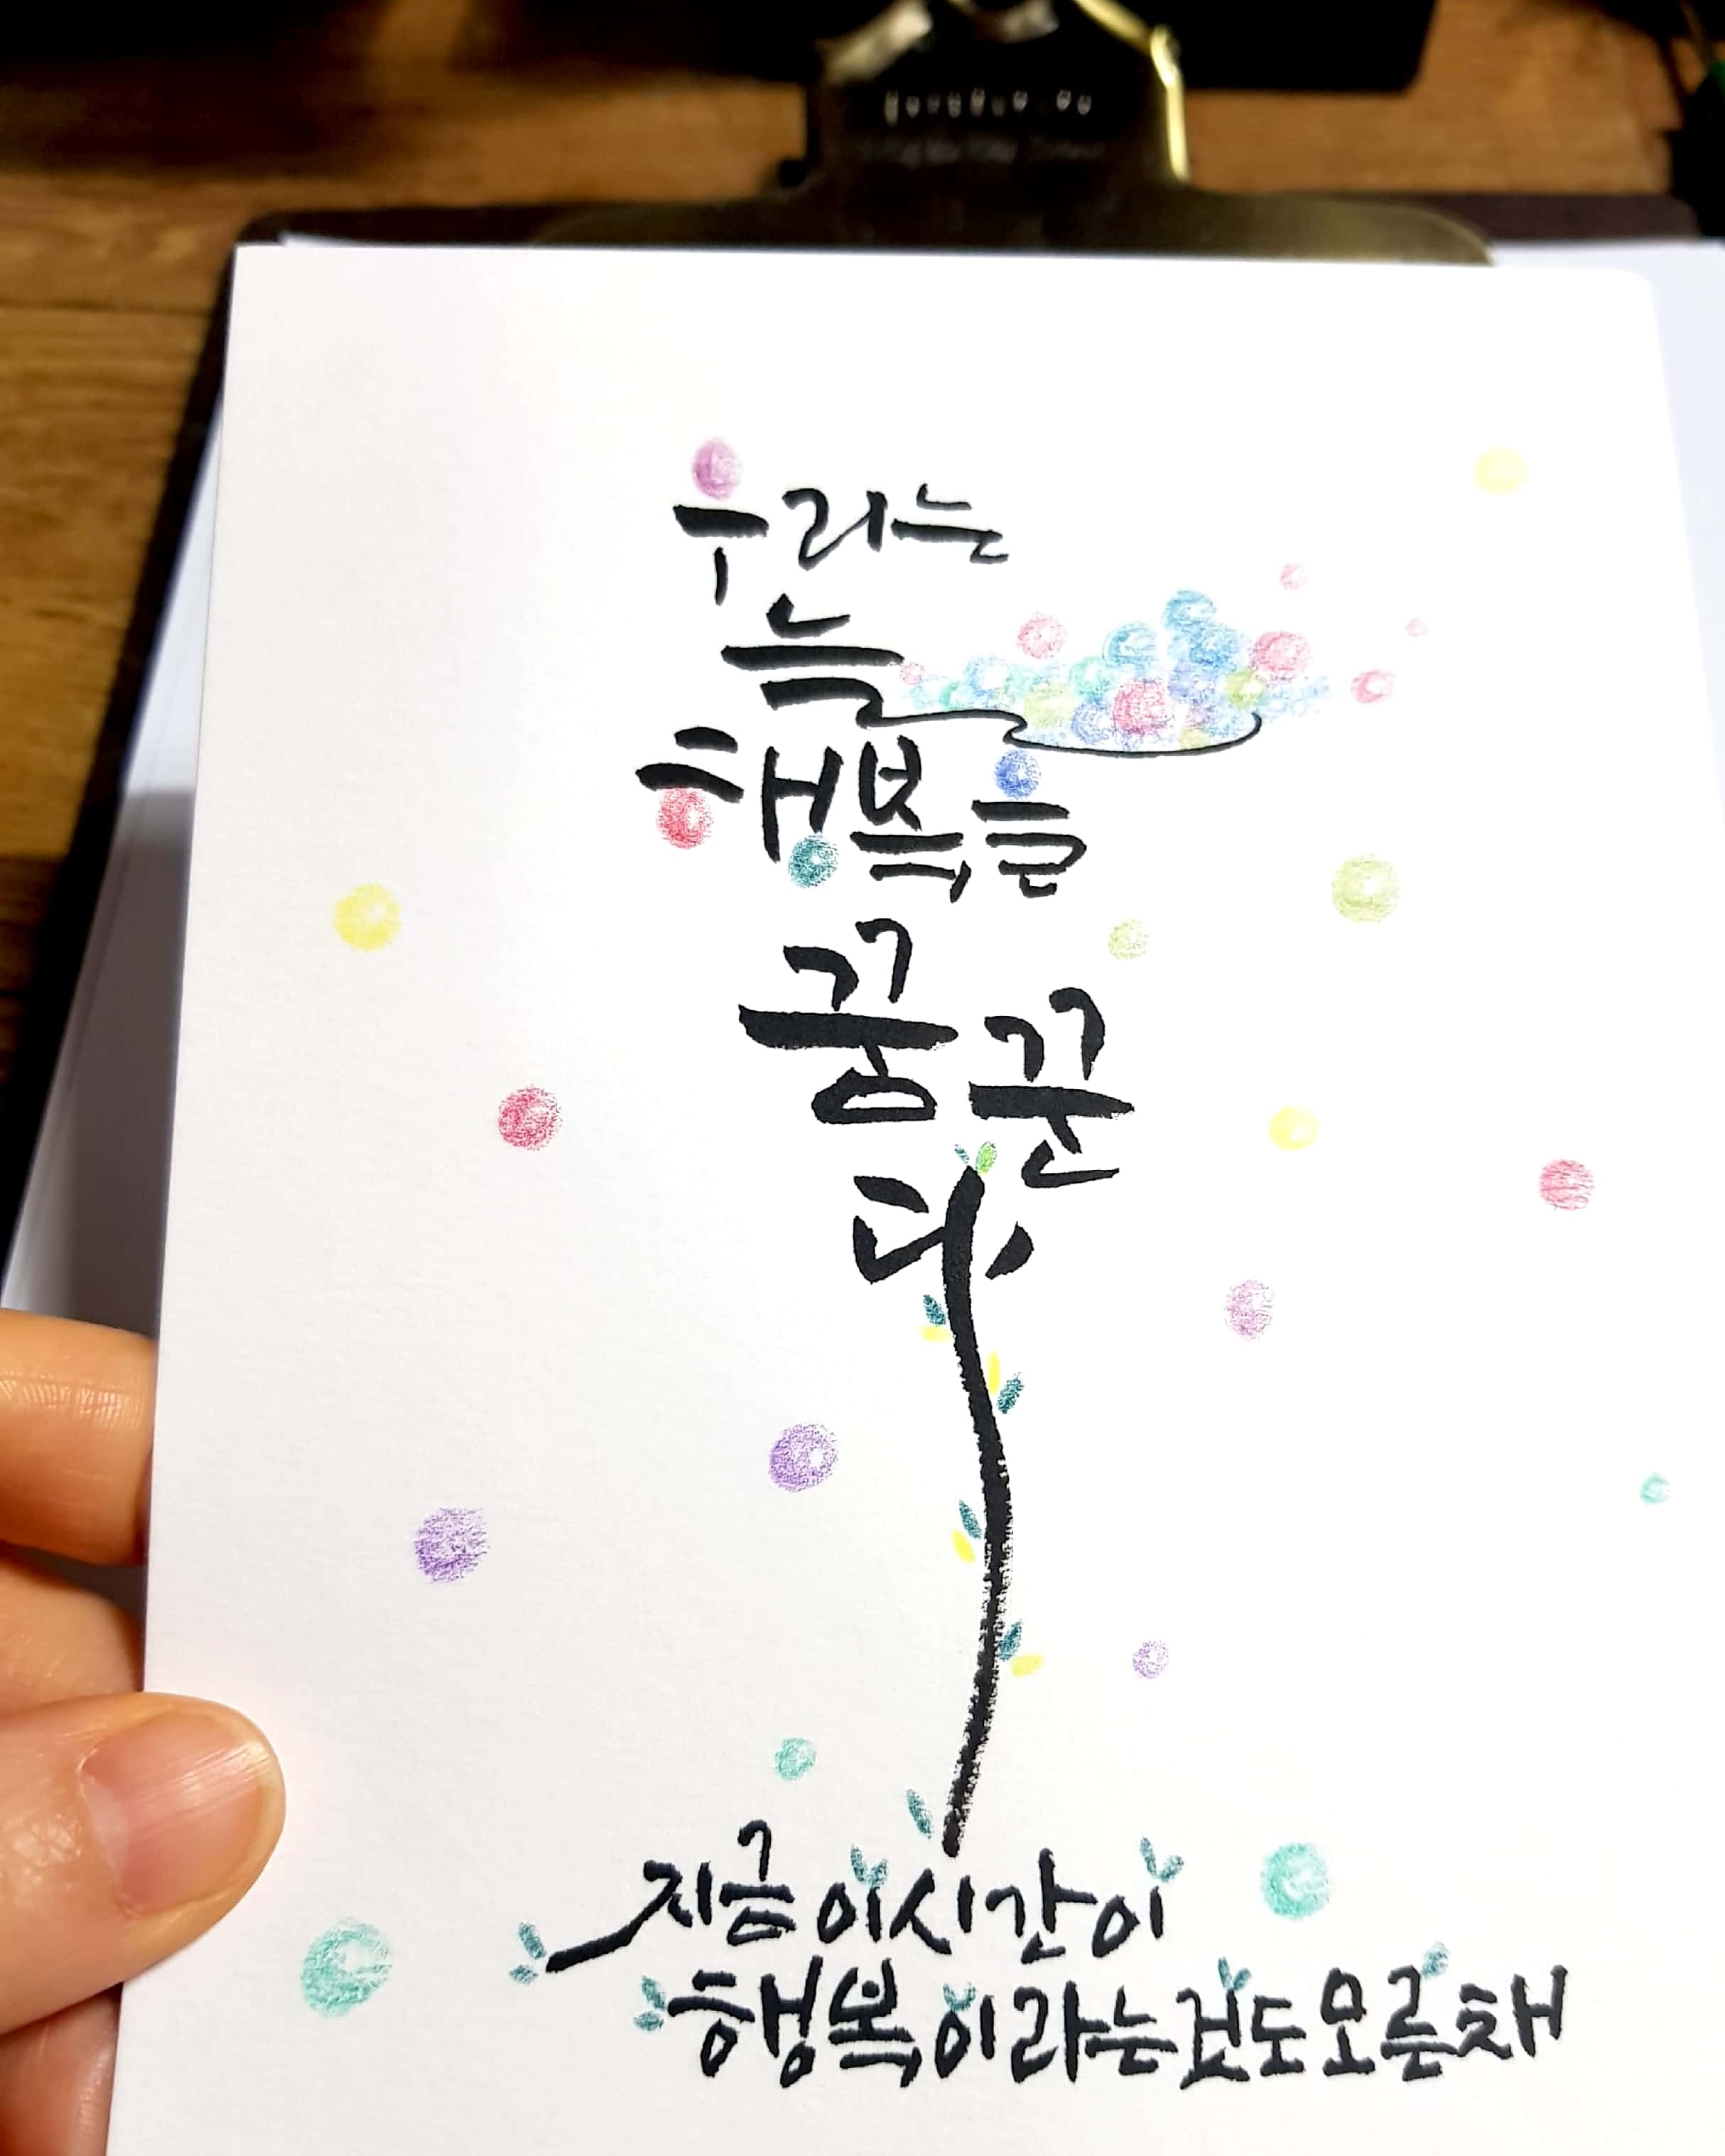 우리는
늘
행복을
꿈꾼
다
지금 이 시간이
행복이라는 것도 모른 채